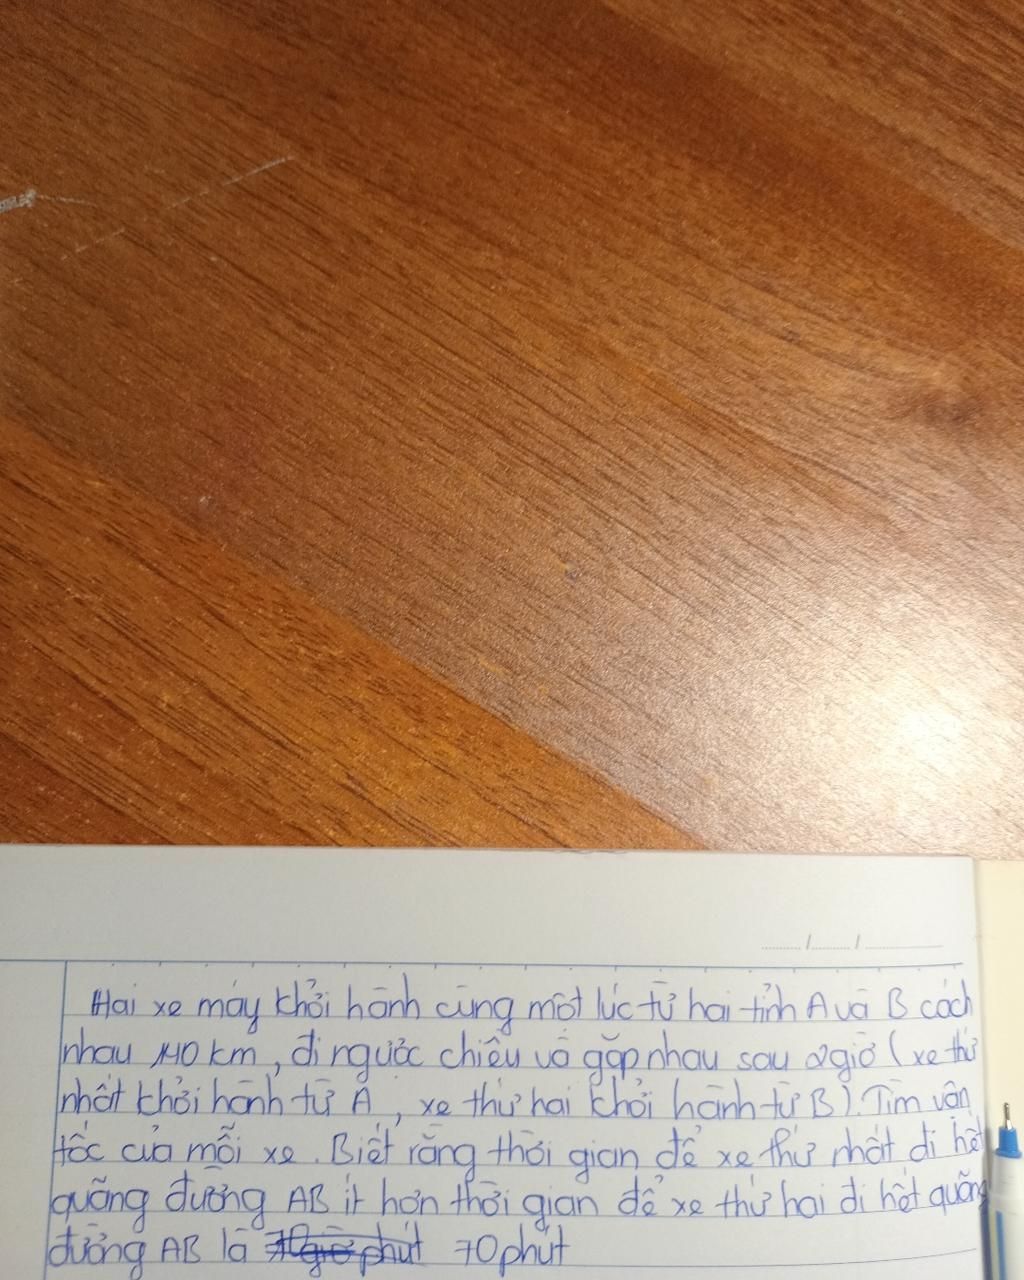 Hai xe máy khởi hành cùng một lúc từ hai tỉnh A và B cách
nhau 140 km, đi ngược chiều và gặp nhau sau 2 giờ (xe thứ
nhất khởi hành từ A, xe thứ hai khởi hành từ B). Tìm vận
tốc của mỗi xe. Biết rằng thời gian để xe thứ nhất đi hết
quãng đường AB ít hơn thời gian để xe thứ hai đi hết quãng
đường AB là 70 phút